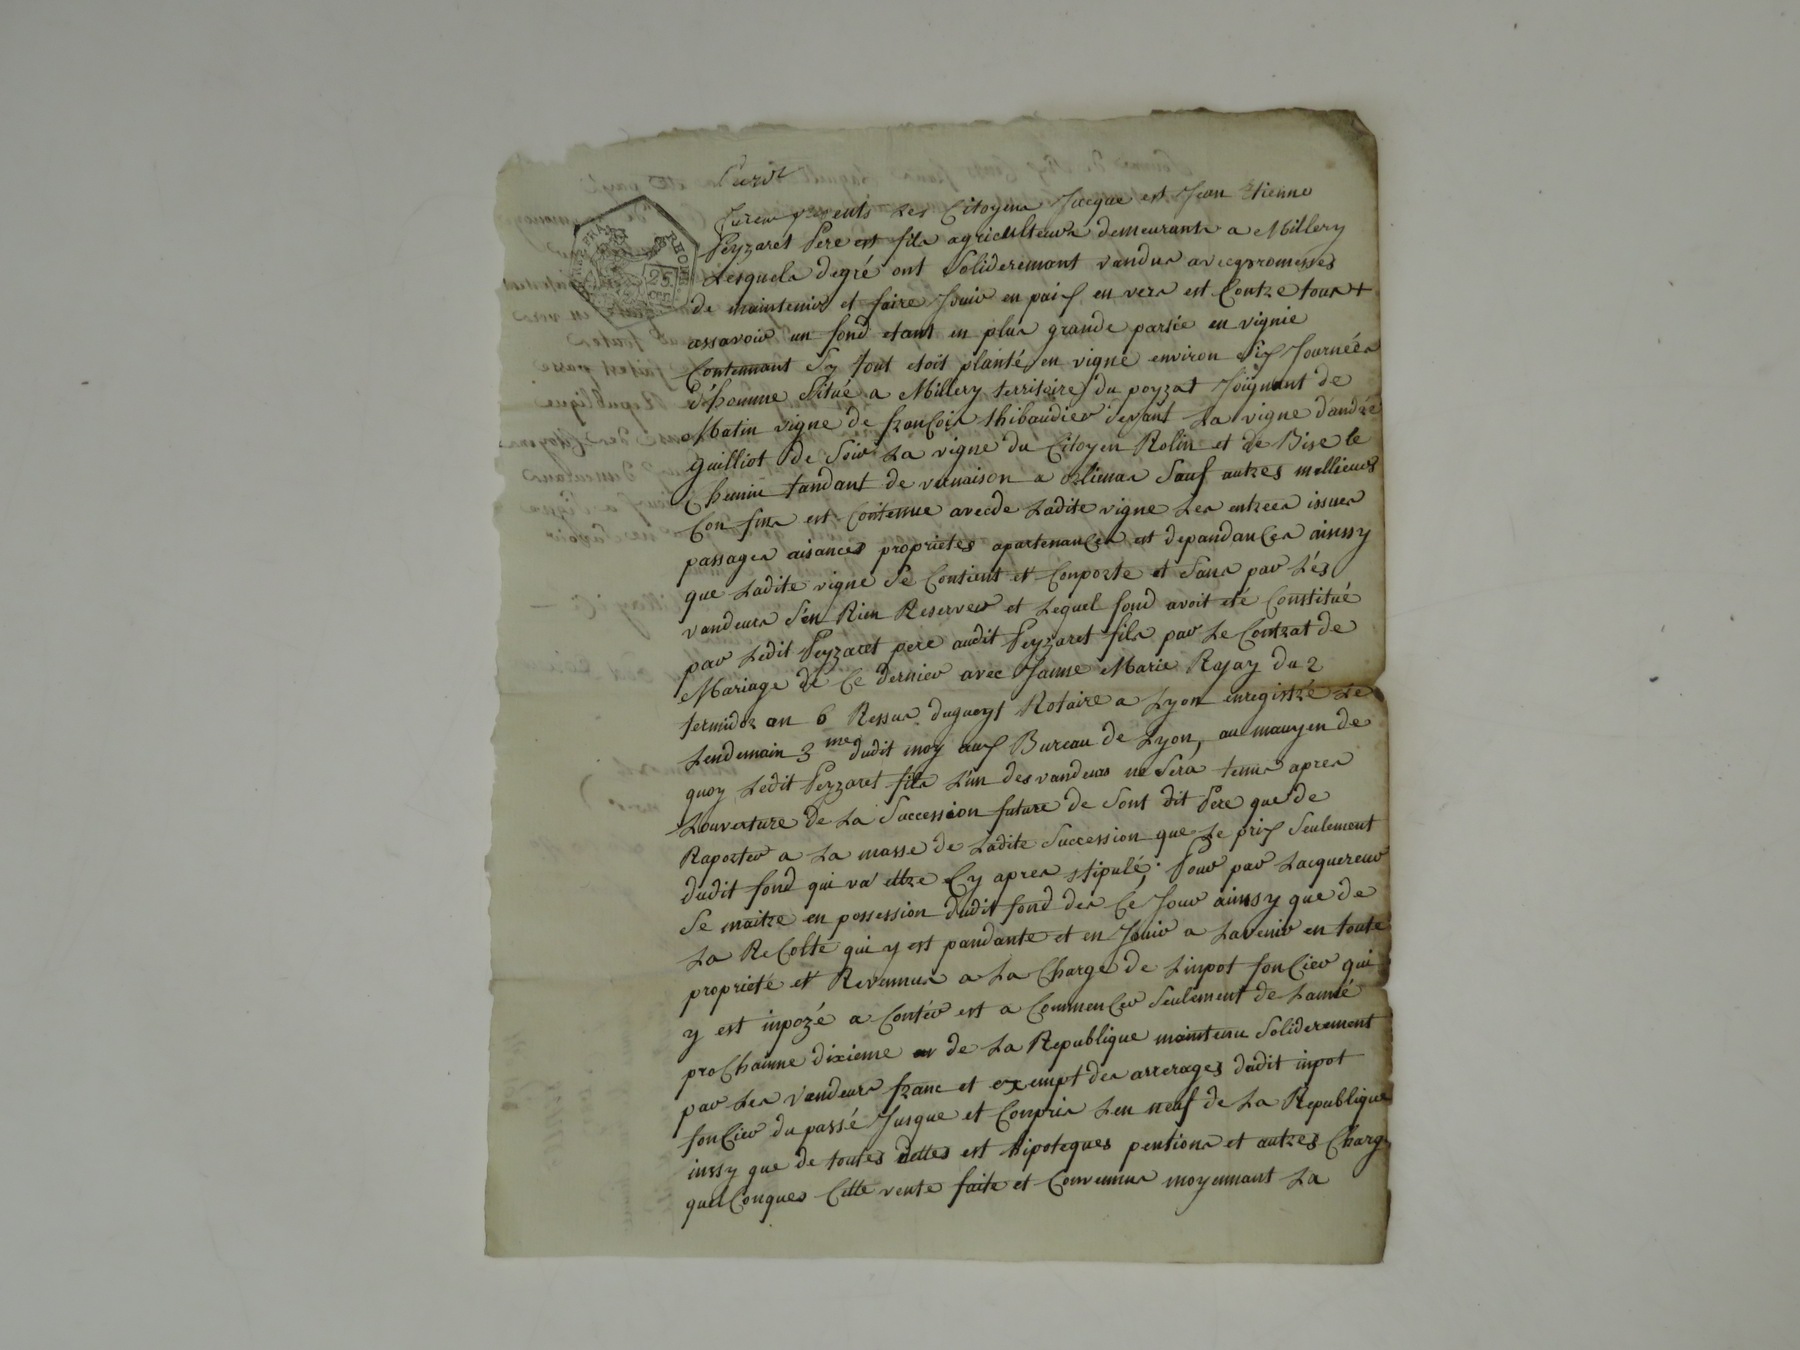 furen presents Les Citoyens Jacque est Jean Etienne
Peyzaret Pere est fils agriculteurs demeurants a Millery
Lesquels degré ont Soliderement vandus avecq promesses
de maintenir et faire Jouir en paix en vers est Contre tous +
assavoir un fond etant en plus grande partie en vignie
Contennant Sy tout etoit planté en vigne environ Six Journéés
d'homme Situé a Millery territoire du poyzat Joignant de
Matin vigne de françois thibaudier devant La vigne d'andré
Guilliot de Soir La vigne du Citoyen Rolin et de Bise le
Chemin tandant de vernaison a Sauf autres mellieurs
Con fins est Contenue avecde Ladite vigne Les entrees issues
passages aisances proprietes apartenances est dependances ainssy
que Ladite vigne Se Contient et Conporte et Sans par Lés
vandeurs S'en Rien Reserver et Lequel fond avoit eté Constitué
par Ledit Peyzaret pere audit Peyzaret fils par Le Contrat de
Mariage de Ce dernier avec Janne Marie Rajay du 2
termidor an 6 Ressus dugueyt Notaire a Lyon enregistré Le
Lendemain 3me dudit moy aux Bureau de Lyon, au mauyen de
quoy Ledit Peyzaret fils L'un des vandeurs ne Sera tenus apres
Louverture de La Succession future de Sont dit Pere que de
Raporter a La masse de Ladite Succession que Le prix Seulement
dudit fond qui va ettre Cy apres stipulé; Pour par Lacquereur
Se maitre en possession dudit fond des Cé Jour ainssy que de
La ReColte qui y est pandante et en Jouir a Lavenir en toute
proprieté et Revenus a La Charge de Linpot fonCier qui
y est inpozé a Contér est a CommenCer Seulement de Lanné
proChainne dixieme an de La Republique maintenu Soliderement
par Les vandeurs franc et exempt des arrerages dudit inpot
fonCier du passé Jusque et Conpris Len neuf de La Republique
inssy que de toutes dettes est hipoteques pentions et autres Charg
quelConques Cette vente faite et Convenus moyennant La
RHONE
25